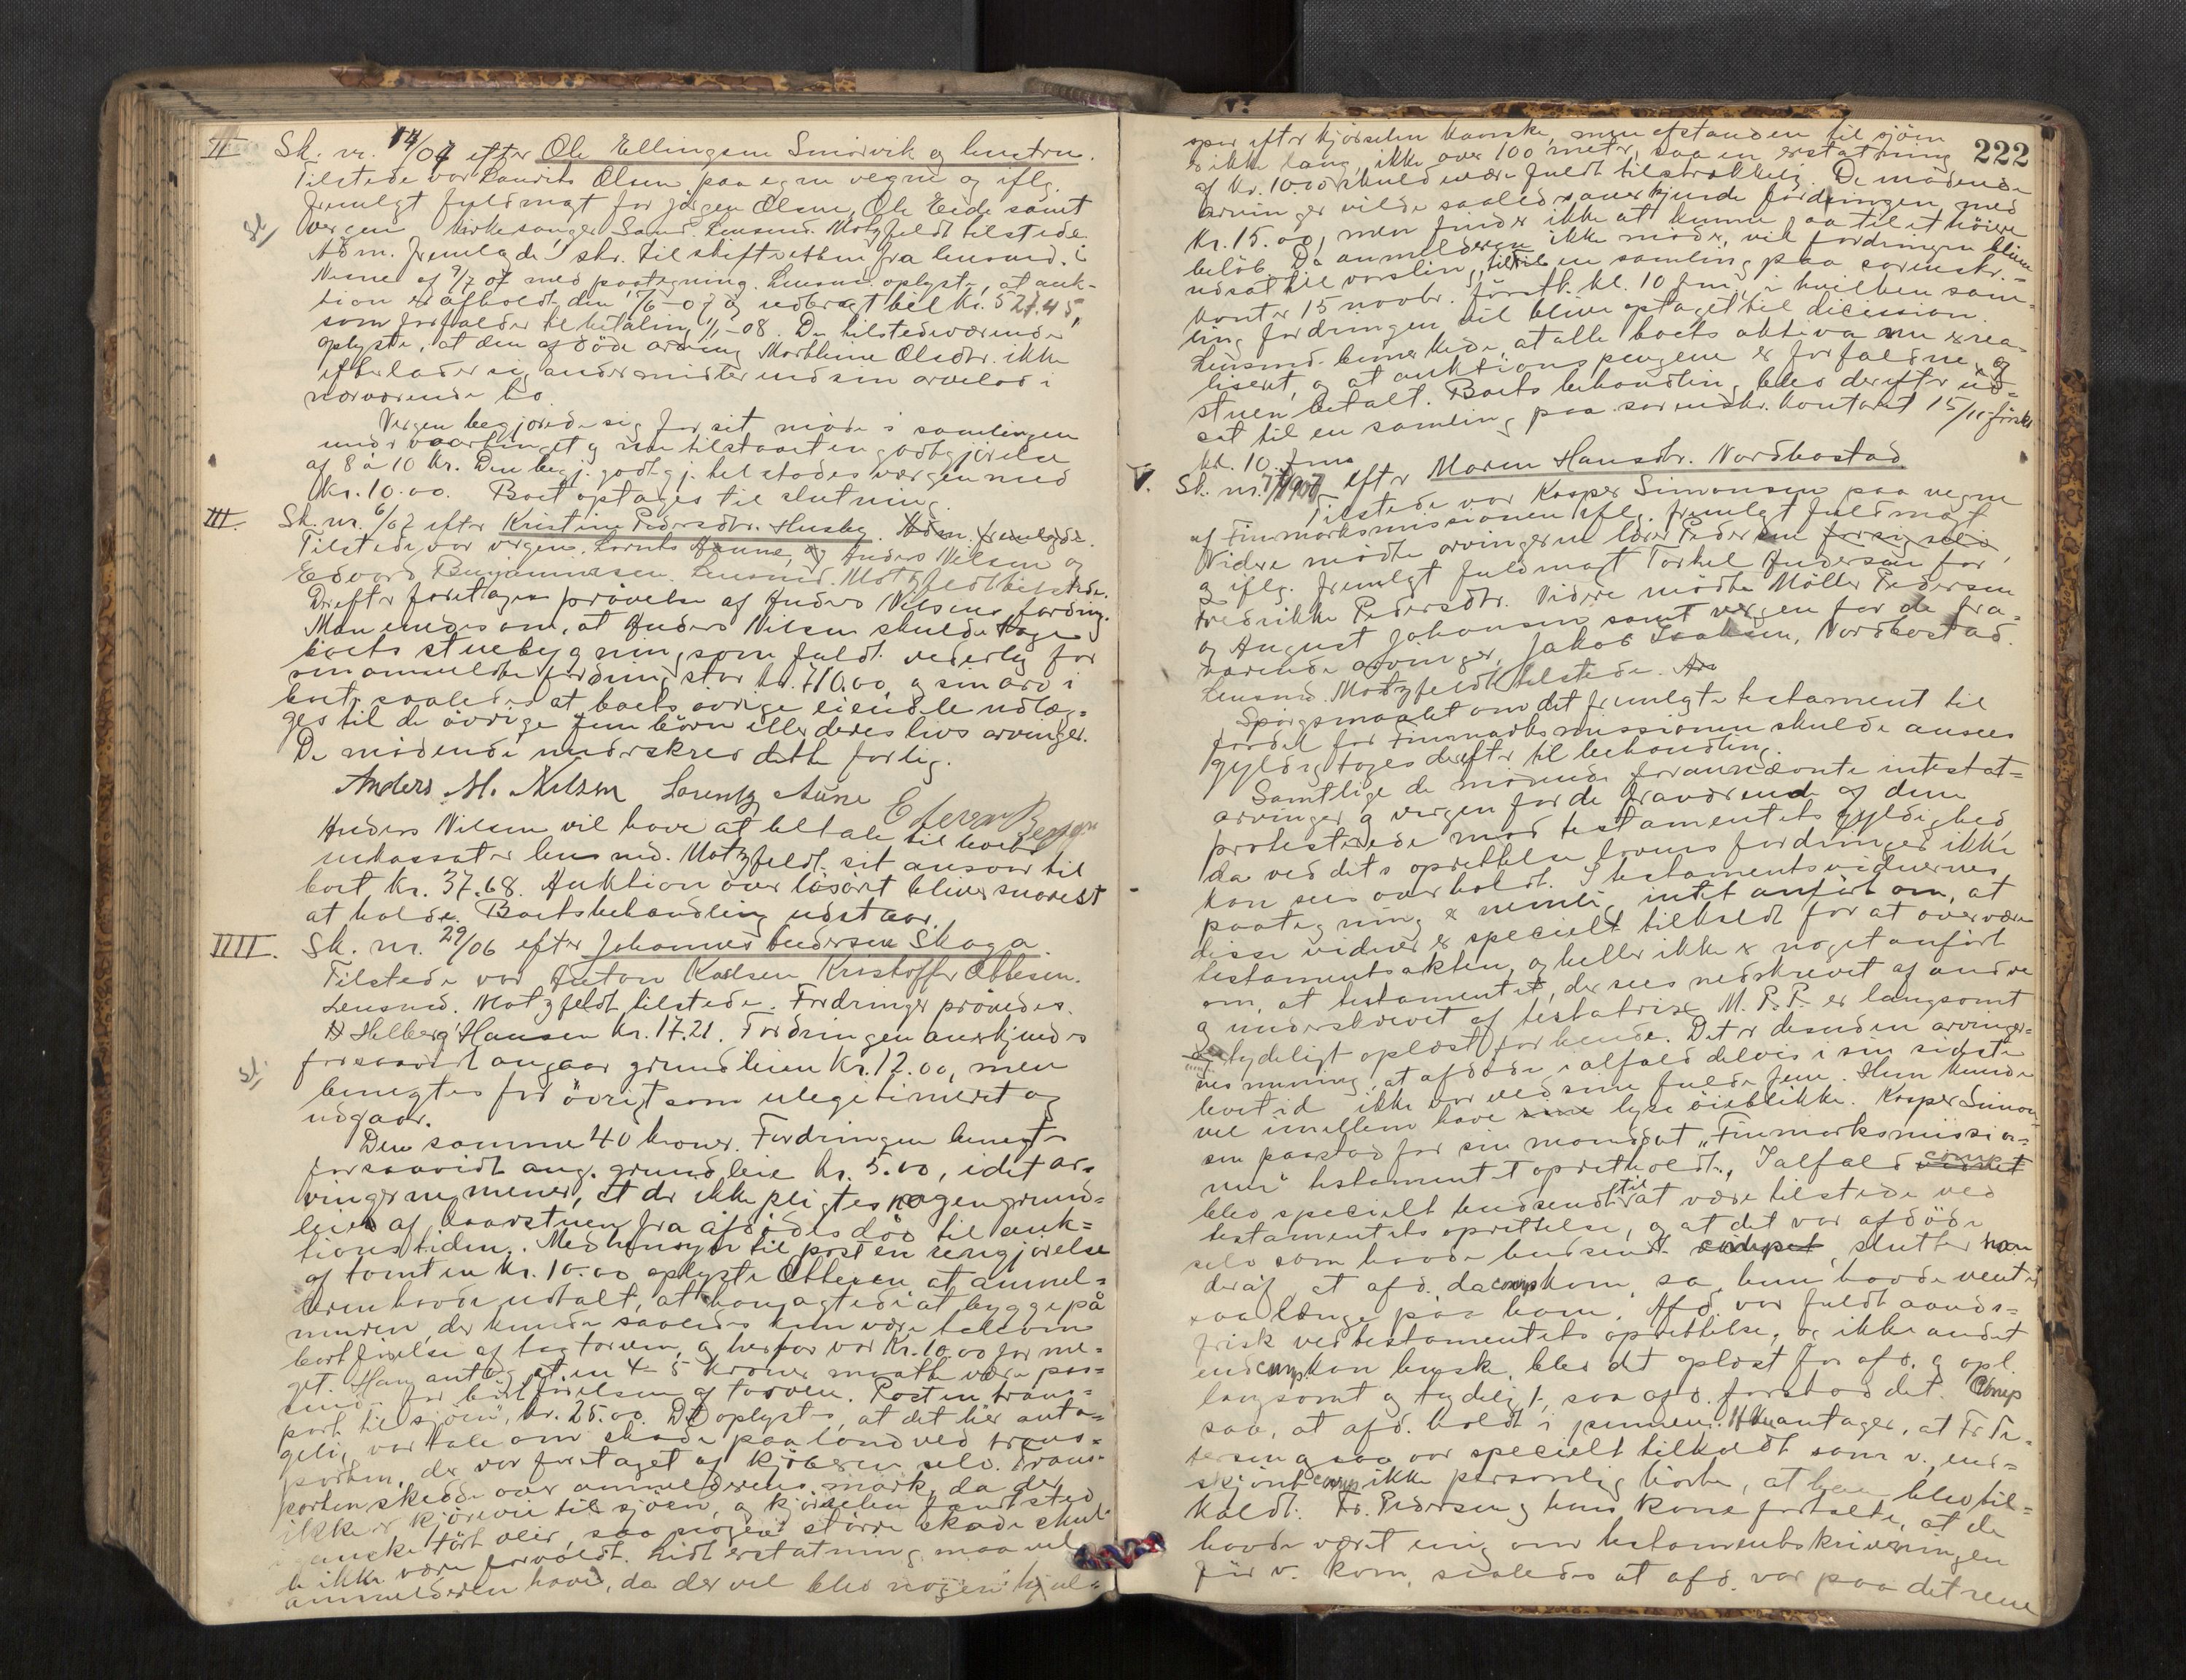 II Sk. nr. 14/07 efter Ole Ellingsen Smörvik og hustru.
Tilstede var Laurits Olsen paa egne vegne og iflg.
fremlagt fuldmagt for Jörgen Olsen, Ole Eide samt
vergen kirkesanger Sand. Lensmd. Motzfeldt tilstede.
Adm. fremlagde skr. til skifteretten fra lensmd. i
Nesne af 9/7 07 med paategning. Lensmd. oplyste, at auk-
tion er afholdt den 17/6-07 og udbragt til kr. 527.45,
som forfalder til betaling 1/1-08. De tilstedeværende
oplyste, at den afdöde arving Marthine Olsdtr. ikke
efterlader sig andre midler end sin arvelod i
nærværende bo.
Vergen begjærede sig for sit möde i samlingen
under vaartinget og nu tilstaaet en godtgjörelse
af 8 à 10 kr. Den begj. godtgj. tilstodes vergen med
kr. 10.00. Boet optages til slutning.
III. Sk. nr. 6/07 efter Kristine Pedersdtr. Husby. Adm. fremlagde.
Tilstede var vergen Lornts Aunne, og Anders Nilsen og
Edvard Benjaminsen. Lensmd. Motzfeldt tilstede.
Derefter foretages prövelse af Anders Nilsens fordring.
Man enedes om, at Anders Nilsen skulde tage
boets stuebygning som fuldt vederlag for
sin anmeldte fordring stor kr. 110.00, og sin arv i
boet, saaledes at boets övrige eiendele udlæg-
ges til de övrige fem börn eller deres livsarvinger.
De mödende underskrev dette forlig.
Anders M. Nilsen Lorentz Aune Edvar Benja
Anders Nilsen vil have at betale til boets
inkassator lensmd. Motzfeldt sit ansvar til
boet kr. 37.68. Auktion over lösöret bliver snarest
at holde. Boetsbehandling udstaar.
IIII. Sk. nr. 29/06 efter Johannes Andersen Skaga.
Tilstede var Anton Karlsen Kristoffer Ottesen.
Lensmd. Motzfeldt tilstede. Fordringer prövedes.
Helberg Hansen kr. 17.21. Fordringen anerkjendes
forsaavidt angaar grundleien kr. 12.00, men
benegtes for övrigt som ulegitimeret og
udgaar.
Den samme 40 kroner. Fordringen benegtes
forsaavidt ang. grundleie kr. 5.00, idet ar-
vingerne mener, at der ikke pligtes nogen grund-
leie af kaarstuen fra afdödes död til auk-
tionstiden. Med hensyn til posten rengjörelse
af tomten kr. 10.00 oplyste Ottesen at anmel-
deren havde udtalt, at han agtede at bygge på
muren, der kunde saaledes kun være tale om
bortförelse af tagtorven, og herfor var kr. 10.00 for me-
get. Han antog at en 4-5 kroner maatte være pas-
sende for bortförelsen af torven. Posten trans-
port til sjöen, kr. 25.00. Det oplystes, at det her anta-
gelig var tale om skade paa land ved trans-
porten, der var foretaget af kjöberen selv. Trans-
porten skedde over anmelderens mark, da der
ikke er kjörevei til sjöen, og kjörselen fandt sted
i ganske tört veir, saa nogen större skade skul-
de ikke være forvoldt. Lidt erstatning maa vel
anmelderen have, da der vel blev nogen hjul-
222
spor efter kjörselen kanske, men afstanden til sjöen
er ikke lang, ikke over 100 meter, saa en erstatning
af kr. 10.00 skulde være fuldt tilstrækkelig. De mödende
arvinger vilde saaledes anerkjende fordringen med
kr. 15.00, men finder ikke at kunne gaa til et höiere
belöb. Da anmelderen ikke möder, vil fordringen blive
udsat til varsling til en samling paa sorenskr.-
kontor 15 novbr. förstk. kl. 10 fm., i hvilken sam-
ling fordringen vil blive optaget til dicission.
Lensmd. bemerkede, at alle boets aktiva nu er rea-
liseret, og at auktionspengene er forfaldne, og
stuen betalt. Boets behandling blev derefter ud-
sat til en samling paa sorenskr. kontoret 15/11 förstk.
kl. 10 fm.
V. Sk. nr. 7/1907 efter Maren Hansdtr. Nordbostad.
Tilstede var Kasper Simonsen paa vegne
af Finmarksmissionen iflg. fremlagt fuldmagt.
Videre mödte arvingerne Peder for sig selv,
og iflg. fremlagt fuldmagt Torkel Andersen for
Fredrikke Pedersdtr. Videre mödte Möller Pedersen
og August Johansen samt vergen for de fra-
værende arvinger, Jakob Isaksen, Nordbostad.
Lensmd. Motzfeldt tilstede.
Spörgsmaalet om det fremlagte testament til
fordel for Finmarksmissionen skulde ansees
gyldig toges derefter til behandling.
Samtlige de mödende forannævnte intestat-
arvinger og vergen for de fraværende af dem
protesterede mod testamentets gyldighed,
da ved dets oprettelse lovens fordringer ikke
kan sees overholdt. I testamentsvidnernes
paategning er nemlig intet anfört om, at
disse vidner er specielt tilkaldt for at overvære
testamentsakten, og heller ikke er noget anfört
om, at testamentet, der sees nedskrevet af andre
og underskrevet af testatrix M. P. P. er langsomt
og tydeligt oplæst for hende. Det er desuden arvinger-
nes mening, at afdöde ialfald delvis i sin sidste
levetid ikke var ved sine fulde fem. Hun kunde
vel imellem have lyse öieblikke. Kasper Simon-
sen paastod for sin mandant „Finmarksmissio-
nen“ testamentet opretholdt. Ialfald comp.
blev specielt budsendt til at være tilstede ved
testamentets oprettelse, og at det var afdöde
selv som havde budsendt comp. slutter han
deraf at afd. da comp kom, sa, hun havde ventet
saa længe paa ham. Afd. var fuldt aands-
frisk ved testamentets oprettelse, og ikke andet
end comp kan huske, blev det oplæst for afd. og opl.
langsomt og tydeligt, saa afd. forstod det. Comp
saa, at afd. holdt i pennen. Han antager, at Fr. Pe-
dersen ogsaa var specielt tilkaldt som v., end-
skjönt comp ikke personlig hörte, at han blev til-
kaldt. Fr. Pedersen og hans kone fortalte, at de
havde været enig om testamentskrivningen
för v. kom, saaledes at afd. var paa det rene